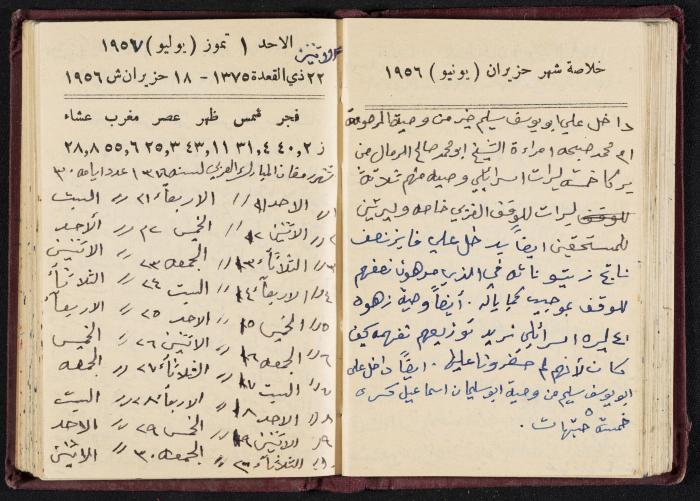 خلاصة شهر حزيران (يونيو) ١٩٥٦
داخل علي ابو يوسف سليم خير من وصية المرحومة
ام محمد صبحه امراءة الشيخ ابو محمد صالح الرمال من
يركا خمسة ليرات اسرائيلي وصيه منهم ثلاثة
ليرات للوقف الغربي خاصه وليرتين
للمستحقين ايضاً يدخل علي فايز نصف
ناتج زيتونات في الدير مرهون نصفهم
للوقف بموجب كمبياله. ايضاً وصية زهوه
٤٠ ليره اسرائيلي نريد توزيعهم نفهمه كيف
كان لأنهم
ايضاً داخل علي
ابو يوسف سليم من وصية ابو سليمان اسماعيل
خمسة جنيهات.
الاحد ١ تموز (يوليو) ١٩٥٧
الاثنين
٢٢ ذي القعدة ١٣٧٥ - ١٨ حزيران ش ١٩٥٦
فجر شمس ظهر عصر مغرب عشاء
ز ٤٠,٢ ٣١,٤ ٤٣,١١ ٢٥,٣ ٥٥,٦ ٢٨,٨
شهر رمضان المبارك العربي لسنة ١٣٧٦ عدد ايامه ٣٠
١/ الاحد ١١ // الاربعاء ٢١ // السبت
٢/ الاثنين ١٢ // الخميس ٢٢ // الأحد
٣/ الثلاثاء ١٣ // الجمعه ٢٣ // الاثنين
٤/ الاربعاء ١٤ // السبت ٢٤ // الثلاثاء
٥/ الخميس ١٥ // الاحد ٢٥ // الاربعاء
٦/ الجمعه ١٦ // الاثنين ٢٦ // الخميس
٧/ السبت ١٧ // الثلاثاء ٢٧ // الجمعه
٨/ الاحد ١٨ // الاربعاء ٢٨ // السبت
٩/ الاثنين ١٩ // الخميس ٢٩ // الاحد
١٠/ الثلاثاء ٢٠ // الجمعه ٣٠ // الاثنين